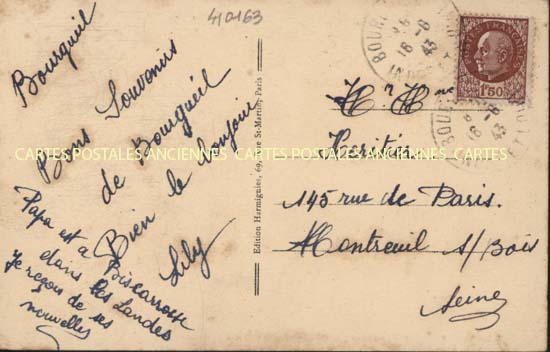 Bourgueil
Bons Souvenirs
de Bourgueil
Bien le bonjour
Lily
Papa est a Biscarrosse
dans les Landes
Je reçois de ses
nouvelles
410163
Edition Harmignies, 69, Rue St-Martin, Paris
POSTES FRANÇAISES
1F50
BOURGUEIL
18 -8
43
Mr Mme
Heritier
145 rue de Paris.
Montreuil s/Bois
Seine
CARTES POSTALES ANCIENNES CARTES POSTALES ANCIENNES CARTES POSTALES ANCIENNES